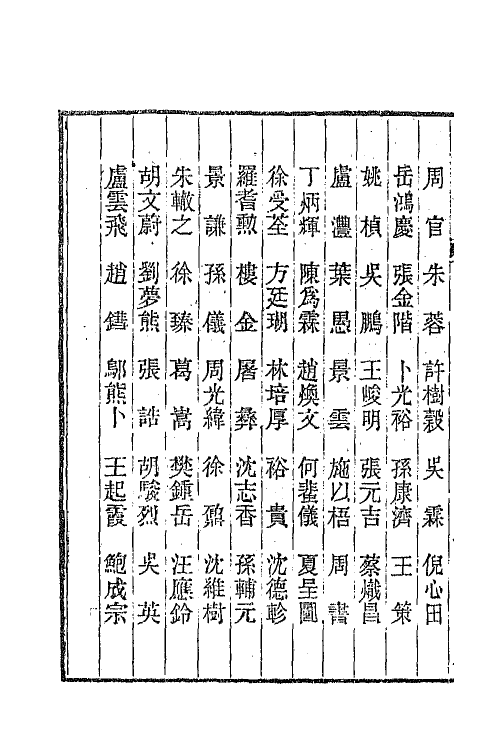 周官 朱蓉 許樹穀 吳霖 倪心田
岳鴻慶 張金階 卜光裕 孫康濟 王策
姚楨 吳鵬 王畯明 張元吉 蔡熾昌
盧灃 葉愚 景雲 施以梧 周書
丁炳輝 陳爲霖 趙煥文 何蜚儀 夏呈圖
徐受荃 方廷瑚 林培厚 裕貴 沈德畛
羅耆勲 樓金 屠彞 沈志香 孫輔元
景謙 孫儀 周光緯 徐鼐 沈維樹
朱轍之 徐臻 葛嵩 樊鍾岳 汪應鈴
胡文蔚 劉夢熊 張誥 胡駿烈 吳英
盧雲飛 趙鏏 鄔熊卜 王起霞 鮑成宗